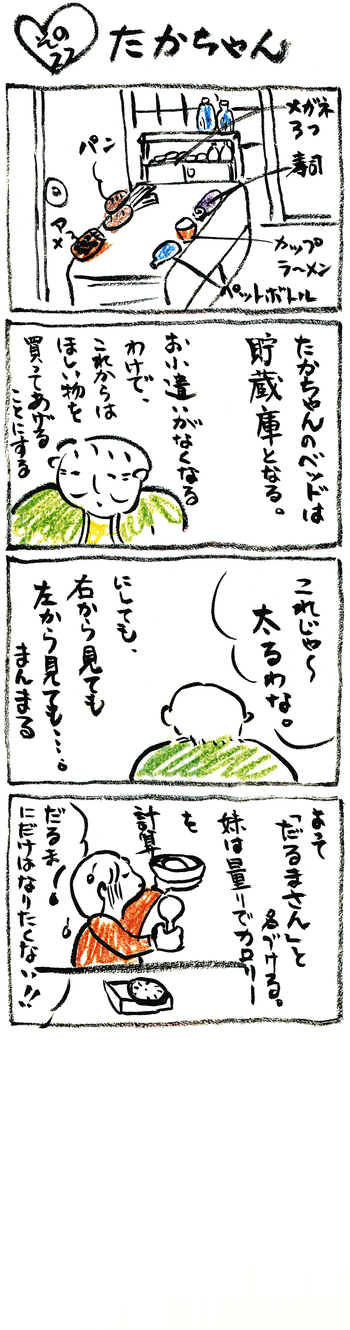 その
22
たかちゃん
メガネ
3つ
寿司
カップ
ラーメン
ペットボトル
パン
アメ
たかちゃんのベッドは
貯蔵庫となる。
お小遣いがなくなる
わけで、
これからは
ほしい物を
買ってあげる
ことにする
これじゃ～
太るわな。
にしても、
右から見ても
左から見ても…。
まんまる
よって
「だるまさん」と
名づける。
妹は量りでカロリー
を
計算
だるま！
にだけはなりたくない!!